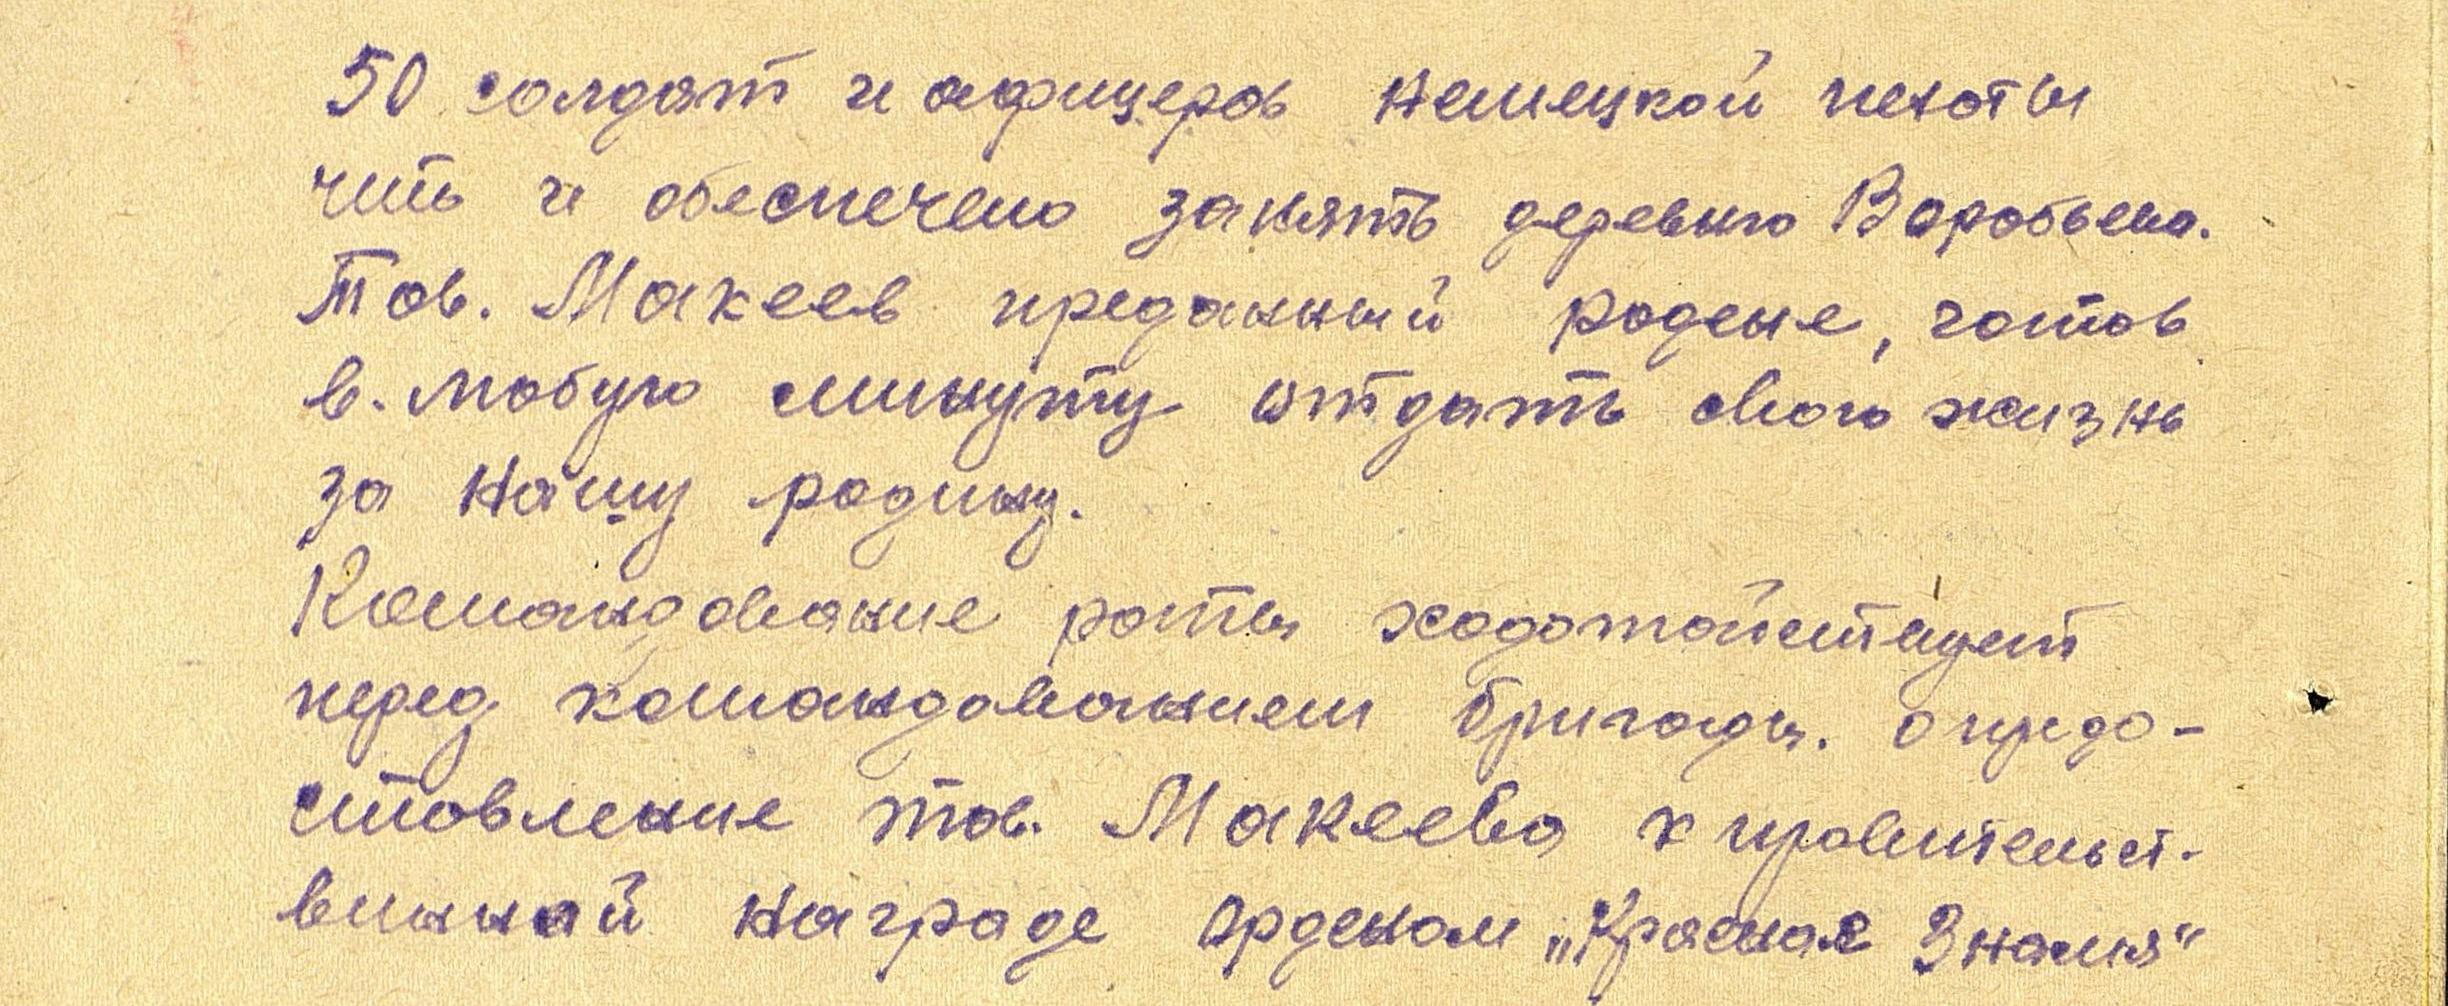 50 солдат и афицеров немецкой пехоты
чить и обеспечено занять деревню Воробьева.
Тов. Макеев преданный родене, готов
в. любую минуту отдать свою жизнь
за нашу родину.
Командование роты ходотойстует
перед командованием бригады. о предо-
ставление тов. Макеева к правительст-
винной награде орденом „Красное Знамя“